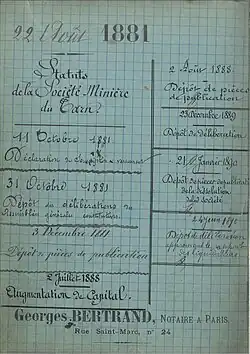 22 Août 1881
Statuts
de la Société Minière
du Tarn
11 Octobre 1881
Déclaration de
31 Octobre 1881
Dépôt de délibérations
générales constitutives
3 Décembre 1881
Dépôt de pièces de publication
2 Juillet 1888
Augmentation de Capital.
2 Août 1888
Dépôt de pièces
de publication
23 Décembre 1889
Dépôt de délibération
21 Janvier 1890
Dépôt de pièces de publication
de la dissolution
de la Société
Georges BERTRAND, NOTAIRE A PARIS,
Rue Saint-Marc, n° 24